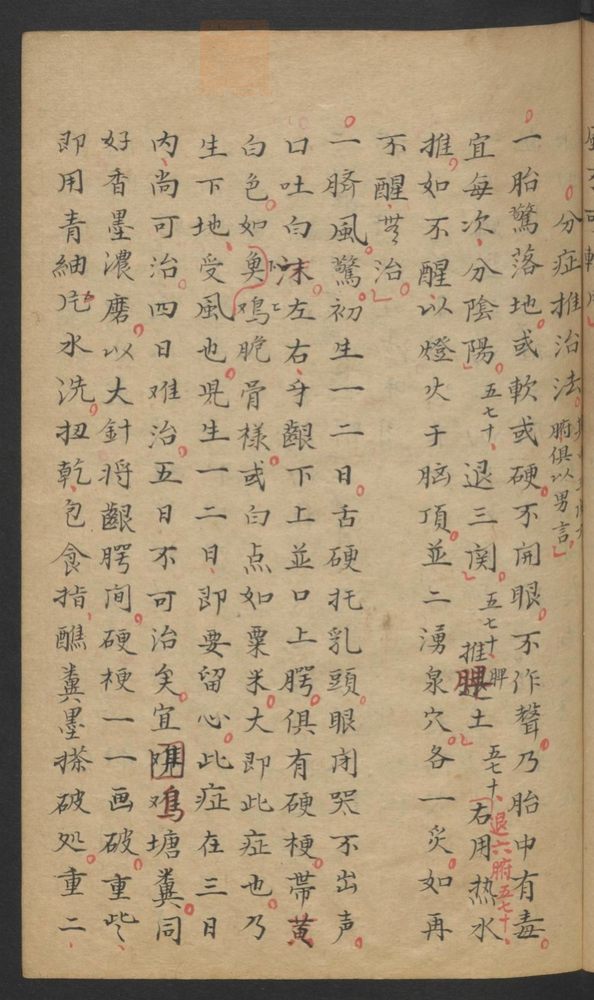 分症推治法 腑俱以男言
一胎驚落地或軟或硬不開眼不作聲乃胎中有毒
宜每次分陰陽五七十退三関五七十推脾土五七十退六腑五七十右用热水
推如不醒以燈火于脑頂並二湧泉穴各一炙如再
不醒無治
一臍風驚初生一二日舌硬扥乳頭眼闭哭不出声
口吐白沫左右牙齦下上並口上腭俱有硬梗帶黄
白色如魚鸡脆骨様或白点如粟米大即此症也乃
生下地受風也児生一二日即要留心此症在三日
内尚可治四日难治五日不可治矣宜塘糞同
好香墨濃磨以大針将齦腭间硬梗一一画破重些
即用青紬片水洗扭乾包食指醮糞墨搽破处重二